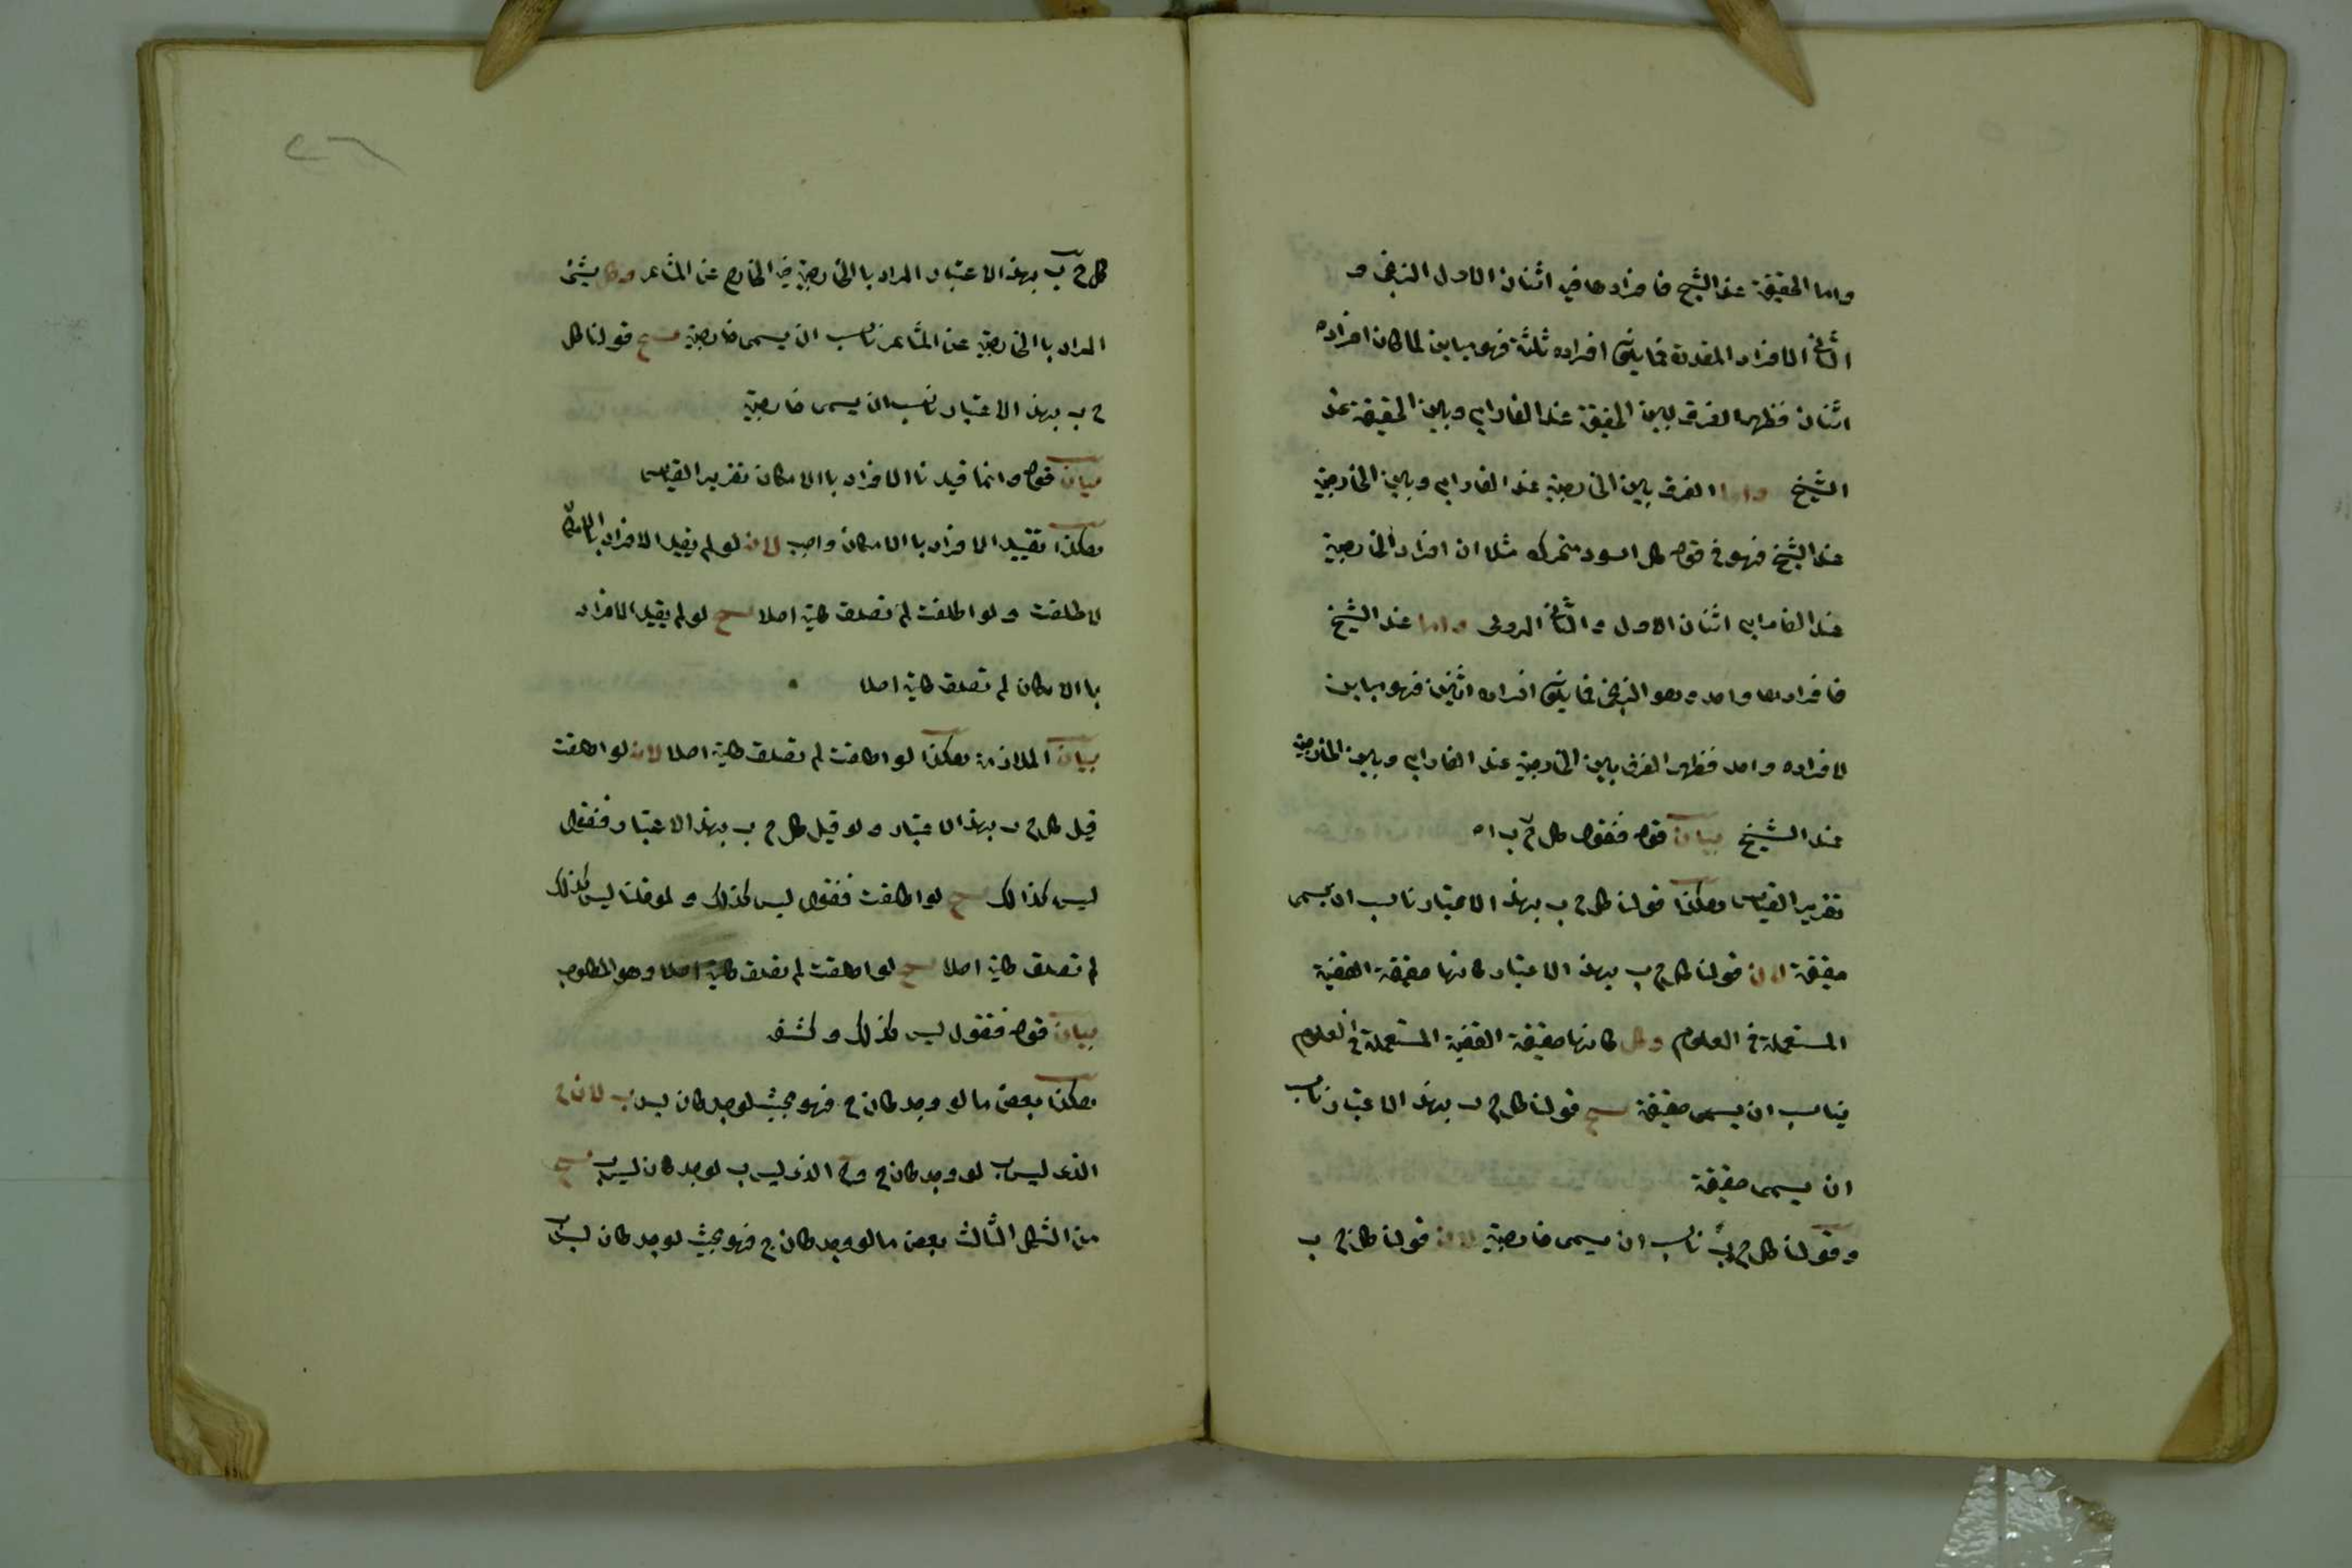 واما الحقيقة عند الشيخ فافرادها في اثنان الاول الزنجى و
الثانى الافراد المقدرة فما يكون افراده ثلثة فهو مباين لما كان افراده
اثنان فظهر الفرق بين الحقيقة عند الفارابى وبين الحقيقة عند
الشيخ واما الفرق بين الخارجية عند الفارابى وبين الخارجية
عند الشيخ فهو فى قوله كل اسود متحرك مثلا ان افراد الخارجية
عند الفارابى اثنان الاول و الثانى الرومى واما عند الشيخ
فافرادها واحد وهو الزنجى فما يكون افراده اثنين فهو مباين
لافراده واحد فظهر الفرق بين الخارجية عند الفارابى وبين الخارجية
عند الشيخ بيان قوله فنقول كل ج ب اه
تقرير القياس هكذا قولنا كل ج ب بهذا الاعتبار ناسب ان يسمى
حقيقة لان قولنا كل ج ب بهذا الاعتبار كانها حقيقة القضية
المستعملة فى العلوم وكل كانها حقيقة القضية المستعملة فى العلوم
يناسب ان يسمى حقيقة ينتج قولنا كل ج ب بهذا الاعتبار ناسب
ان يسمى حقيقة
وقولنا كل ج ب ناسب ان يسمى خارجية لان قولنا كل ج ب
٢٦
كل ج ب بهذا الاعتبار المراد باالخارجية فيه الخارج عن المشاعر وكل شئ
المراد باالخارجية عن المشاعر ناسب ان يسمى خارجية ينتج قولنا كل
ج ب بهذا الاعتبار ناسب ان يسمى خارجية
بيان قوله وانما قيدنا الافراد باالامكان تقرير القياس
هكذا تقييد الافراد باالامكان واجب لان لو لم يقيد الافراد بالامكان
لاطلقت ولو اطلقت لم تصدق كلية اصلا ينتج لو لم يقيد الافراد
باالامكان لم تصدق كلية اصلا
بيان الملازمة هكذا لو اطلقت لم تصدق كلية اصلا لان لو اطلقت
قيل كل ج ب بهذا الاعتبار ولو قيل كل ج ب بهذا الاعتبار فنقول
ليس كذالك ينتج لو اطلقت فنقول ليس كذلك و لو قلنا ليس كذلك
لم تصدق كلية اصلا ينتج لو اطلقت لم تصدق كلية اصلا وهو المطلوب
بيان قوله فنقول ليس كذلك وكشفه
هكذا بعض ما لو وجد كان ج فهو بحيث لو وجد كان ليس ب لان ج
الذى ليس ب لو وجد كان ج وج الذى ليس ب لو وجد كان ليس ب ينتج
من الشكل الثالث بعض ما لو وجد كان ج فهو بحيث لو وجد كان ليس ب